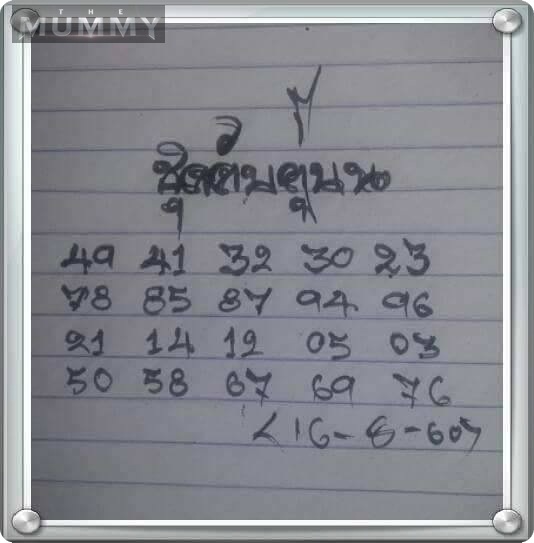 THE
MUMMY
49 41 32 30 23
78 85 87 94 96
21 14 12 05 03
50 58 67 69 76
16-8-60